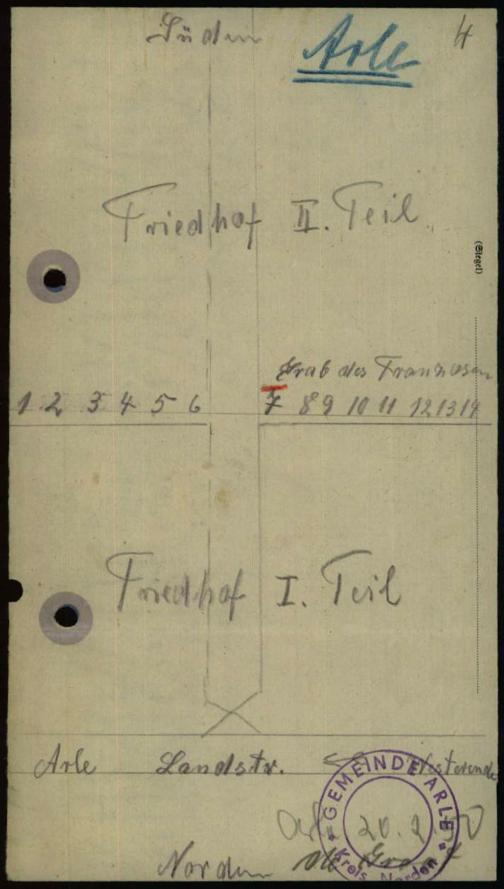 Süden
Arle
4
Friedhof II. Teil
(Siegel)
Grab des Franzosen
1 2 3 4 5 6 7 8 9 10 11 12 13 14
Friedhof I. Teil
Arle Landstr. Westerende
GEMEINDE ARLE
Kreis Norden
20.2.50
Norden